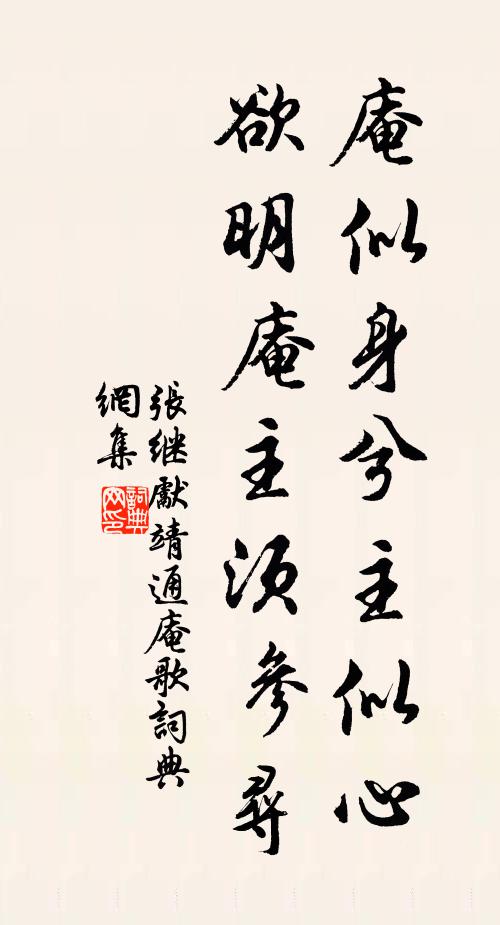 庵似身兮主似心
欲明庵主须參尋
張继獻靖通庵歌詞典
網集
詞典
网印